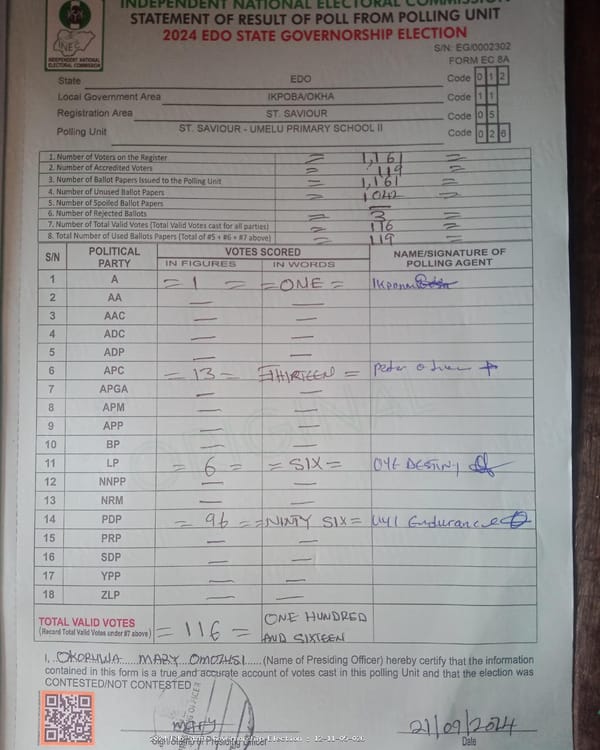 INDEPENDENT NATIONAL ELECTORAL COMMISSION
STATEMENT OF RESULT OF POLL FROM POLLING UNIT
2024 EDO STATE GOVERNORSHIP ELECTION
INEC
INDEPENDENT NATIONAL
ELECTORAL COMMISSION
S/N: EG/0002302
FORM EC 8A
State EDO Code 0 1 2
Local Government Area IKPOBA/OKHA Code 1 1
Registration Area ST. SAVIOUR Code 0 5
Polling Unit ST. SAVIOUR - UMELU PRIMARY SCHOOL II Code 0 2 6
1. Number of Voters on the Register = 1,161 =
2. Number of Accredited Voters = 119 =
3. Number of Ballot Papers Issued to the Polling Unit = 1,161 =
4. Number of Unused Ballot Papers = 1042 =
5. Number of Spoiled Ballot Papers —
6. Number of Rejected Ballots = 3 =
7. Number of Total Valid Votes (Total Valid Votes cast for all parties) = 116 =
8. Total Number of Used Ballots Papers (Total of #5 + #6 + #7 above) = 119 =
S/N POLITICAL PARTY VOTES SCORED NAME/SIGNATURE OF POLLING AGENT
IN FIGURES IN WORDS
1 A = 1 = = ONE =
2 AA — —
3 AAC — —
4 ADC — —
5 ADP — —
6 APC = 13 = THIRTEEN = Peter
7 APGA — —
8 APM — —
9 APP — —
10 BP — —
11 LP = 6 = = SIX = DESTINY
12 NNPP — —
13 NRM — —
14 PDP = 96 = = NINTY SIX = UYI Endurance
15 PRP — —
16 SDP — —
17 YPP — —
18 ZLP — —
TOTAL VALID VOTES
(Record Total Valid Votes under #7 above) = 116 = ONE HUNDRED
AND SIXTEEN
I, OKORHWA MARY OMOZUSI (Name of Presiding Officer) hereby certify that the information
contained in this form is a true and accurate account of votes cast in this polling Unit and that the election was
CONTESTED/NOT CONTESTED
Mary 21/09/2024
Signature of Presiding Officer Date